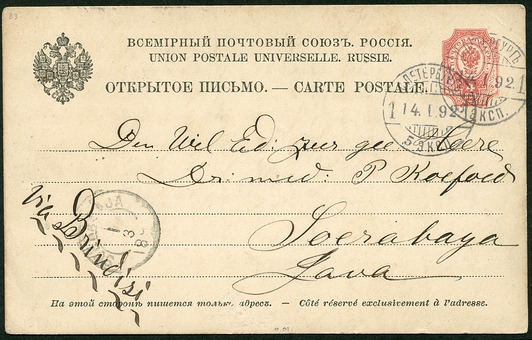 ВСЕМІРНЫЙ ПОЧТОВЫЙ СОЮЗЪ. РОССІЯ.
UNION POSTALE UNIVERSELLE. RUSSIE.
ОТКРЫТОЕ ПИСЬМО. — CARTE POSTALE.
14. I. 92
5 ЭКСП.
14. I. 92
ЭКСП.
Den Wel Ed: zeer gel: Heere
Dr: med: P Koefoed
Soerabaya
Java
via Brindisi
На этой сторонѣ пишется только адресъ. — Côté réservé exclusivement à l'adresse.